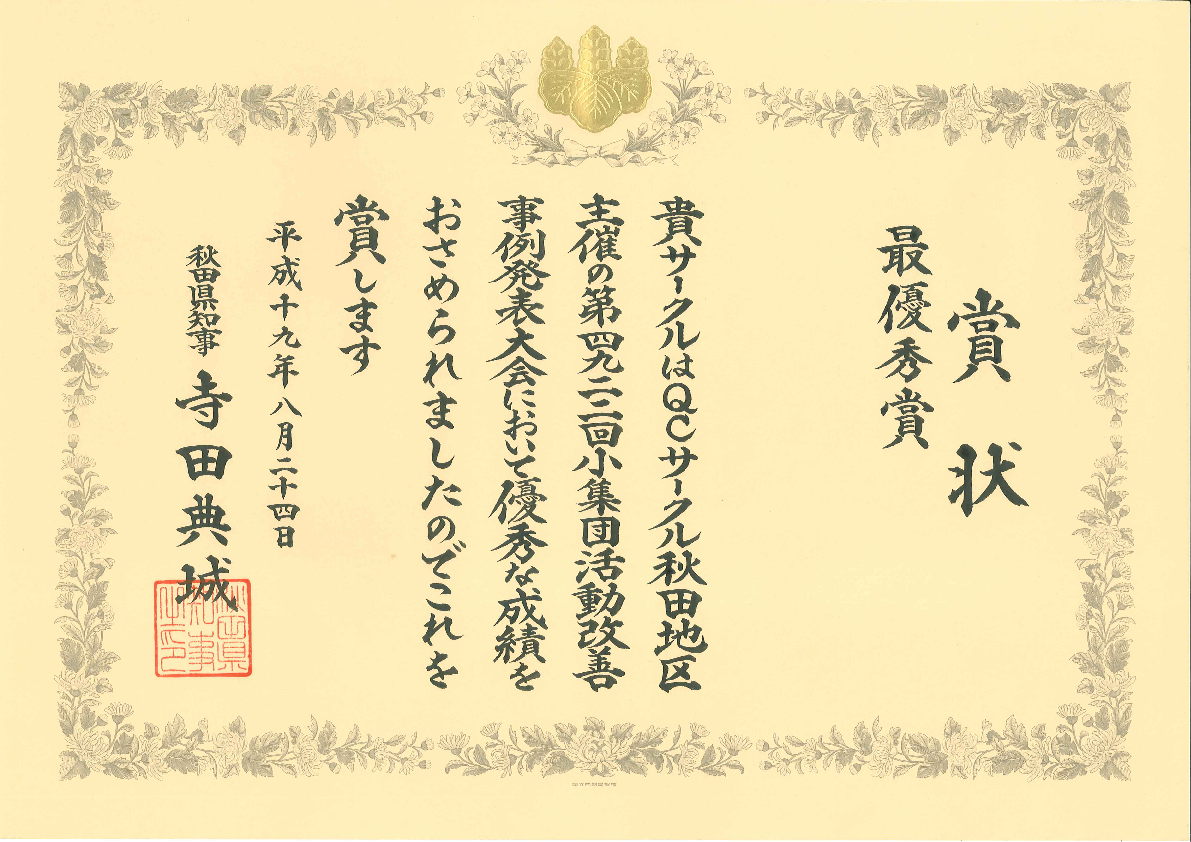 賞状
最優秀賞
貴サークルはQCサークル秋田地区
主催の第四九二二回小集団活動改善
事例発表大会において優秀な成績を
おさめられましたのでこれを
賞します
平成十九年八月二十四日
秋田県知事 寺田典城
秋田県
知事
之印